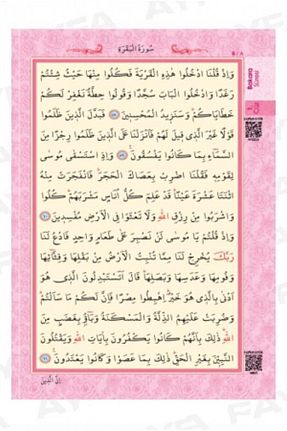 سُورَةُ الْبَقَرَةِ
٨
وَاِذْ قُلْنَا ادْخُلُوا هٰذِهِ الْقَرْيَةَ فَكُلُوا مِنْهَا حَيْثُ شِئْتُمْ
رَغَدًا وَادْخُلُوا الْبَابَ سُجَّدًا وَقُولُوا حِطَّةٌ نَغْفِرْ لَكُمْ
خَطَايَاكُمْ وَسَنَزِيدُ الْمُحْسِنِينَ ﴿٥٨﴾ فَبَدَّلَ الَّذِينَ ظَلَمُوا
قَوْلًا غَيْرَ الَّذِي قِيلَ لَهُمْ فَاَنْزَلْنَا عَلَى الَّذِينَ ظَلَمُوا رِجْزًا مِنَ
السَّمَاءِ بِمَا كَانُوا يَفْسُقُونَ ﴿٥٩﴾ وَاِذِ اسْتَسْقٰى مُوسٰى
لِقَوْمِهِ فَقُلْنَا اضْرِبْ بِعَصَاكَ الْحَجَرَ فَانْفَجَرَتْ مِنْهُ
اثْنَتَا عَشْرَةَ عَيْنًا قَدْ عَلِمَ كُلُّ اُنَاسٍ مَشْرَبَهُمْ كُلُوا
وَاشْرَبُوا مِنْ رِزْقِ اللّٰهِ وَلَا تَعْثَوْا فِي الْاَرْضِ مُفْسِدِينَ ﴿٦٠﴾
وَاِذْ قُلْتُمْ يَا مُوسٰى لَنْ نَصْبِرَ عَلٰى طَعَامٍ وَاحِدٍ فَادْعُ لَنَا
رَبَّكَ يُخْرِجْ لَنَا مِمَّا تُنْبِتُ الْاَرْضُ مِنْ بَقْلِهَا وَقِثَّائِهَا
وَفُومِهَا وَعَدَسِهَا وَبَصَلِهَا قَالَ اَتَسْتَبْدِلُونَ الَّذِي هُوَ
اَدْنٰى بِالَّذِي هُوَ خَيْرٌ اِهْبِطُوا مِصْرًا فَاِنَّ لَكُمْ مَا سَاَلْتُمْ
وَضُرِبَتْ عَلَيْهِمُ الذِّلَّةُ وَالْمَسْكَنَةُ وَبَاؤُ بِغَضَبٍ مِنَ
اللّٰهِ ذٰلِكَ بِاَنَّهُمْ كَانُوا يَكْفُرُونَ بِاٰيَاتِ اللّٰهِ وَيَقْتُلُونَ
النَّبِيِّنَ بِغَيْرِ الْحَقِّ ذٰلِكَ بِمَا عَصَوْا وَكَانُوا يَعْتَدُونَ ﴿٦١﴾
اِنَّ الَّذِينَ
Bakara
Suresi
1
Cüz